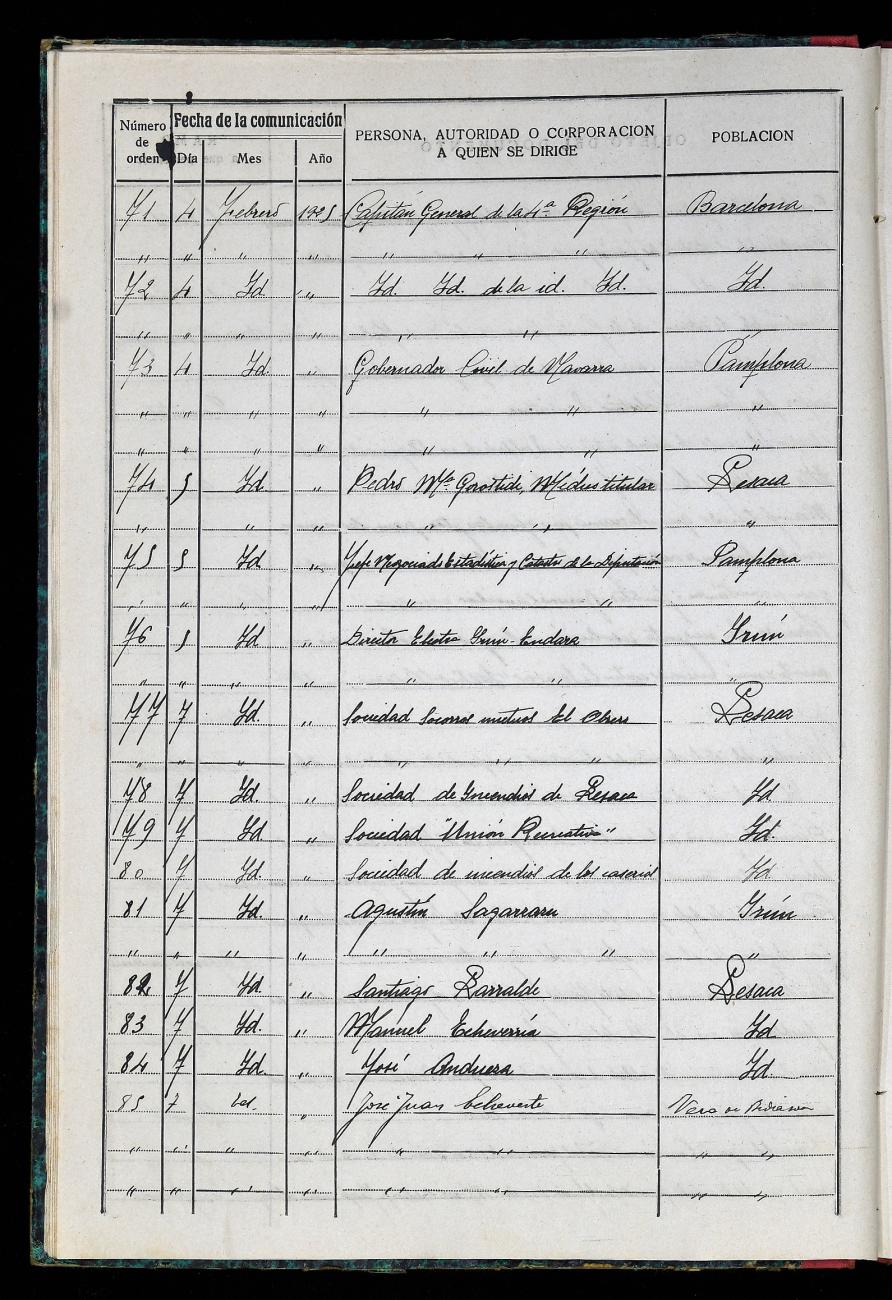 Número de orden Fecha de la comunicación Día Mes Año PERSONA, AUTORIDAD O CORPORACION A QUIEN SE DIRIGE POBLACION
71 4 Febrero 1925 Capitán General de la 4ª Región Barcelona
" " " " " " " "
72 4 Id. " Id. Id. de la id. Id. Id.
" " " " " " "
73 4 Id. " Gobernador Civil de Navarra Pamplona
" " " " " " "
" " " " " " "
74 5 Id " Pedro Mª Gorostidi, Médico titular Lesaca
" " " " " "
75 5 Id " Jefe Negociado Estadística y Catastro de la Diputación Pamplona
" " " " " " "
76 5 Id " Director Electra Irún-Endara Irún
" " " " " " "
77 7 Id. " Sociedad Socorros mutuos El Obrero Lesaca
" " " " " " " "
78 7 Id. " Sociedad de Incendios de Lesaca Id
79 7 Id " Sociedad "Unión Recreativa" Id.
80 7 Id " Sociedad de incendios de los caserios Id
81 7 Id. " Agustín Sagarzazu Irún
" " " " " " " "
82 7 Id " Santiago Larralde Lesaca
83 7 Id. " Manuel Echeverría Id
84 7 Id. " José Andueza Id.
85 7 id. " José Juan Echeveste Vera de Bidasoa
" " " " " " " "
" " " " " " " "